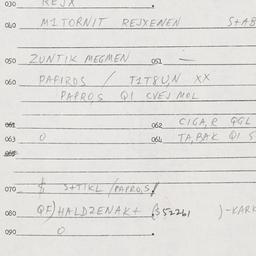 030 REJX
040 M1TORNIT REJXENEN S+AB
050 ZUNTIK MEGMEN 051 —
060 PAPIROS / T1T8UN XX
PAPRO,S Q1 CVEJ MOL
061 062 CIGA,R QGL
063 0 064 TA,BAK Q1 S
065
070 $ S+TIKL /PAPRO,S/
080 QF)HALDZENAK+ (352261 )-KARK
090 0